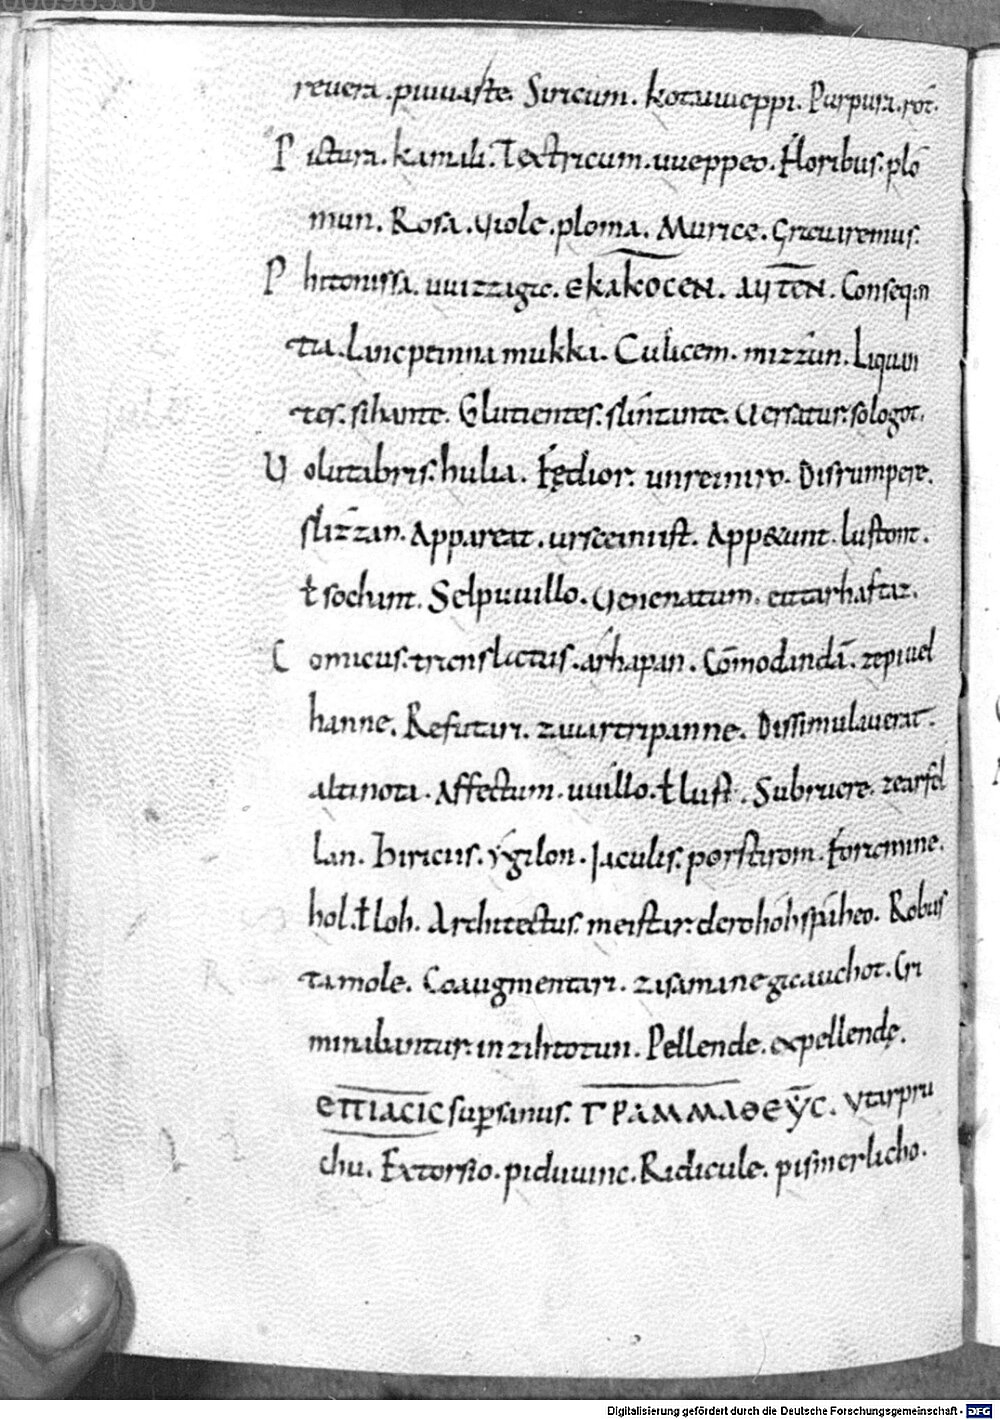 revera. piuuaste. Siricum. kotauueppi. Purpura. rót.
Pictura. kamali. Textricum. uueppeo. Floribus. plō
mun. Rosa. viole. ploma. Murice. Gricuiremus.
Phitonissa. uuizzagic. ekakocen. ayten. Conseq:n
tia. Lincptinna mukka. Culicem. mizzun. Liquan
tes. sihante. Glutientes. slintante. Versatur. sologot.
Volutabris. hulia. Fędior. unreiniro. Disrumpere.
slizzan. Appareat. ursceinist. Appetunt. lustont.
ł sochunt. Selpuuillo. Venenatum. eittarhaftaz.
Comicus. trienslictus. arhapan. Cōmodandā. zepiuel
hanne. Refutari. zuuartripanne. Dissimulauerat.
altinota. Affectum. uuillo. ł lust. Subruere. zearfel
lan. Hiricus. ygilon. Jaculis. porstirom. Foramine.
hol. ł loh. Architectus. meistar. derohóhspiheo. Robus
tamole. Coaugmentari. zisamanegicauchot. Cri
minabantur. inzihtotun. Pellende. expellendę.
eπιacic suꝑsanus. ΓΡΑΜΜΑΘΕΥC. Vtarpru
chu. Extorsio. piduuinc. Ridicule. pismerlicho.
Digitalisierung gefördert durch die Deutsche Forschungsgemeinschaft - DFG